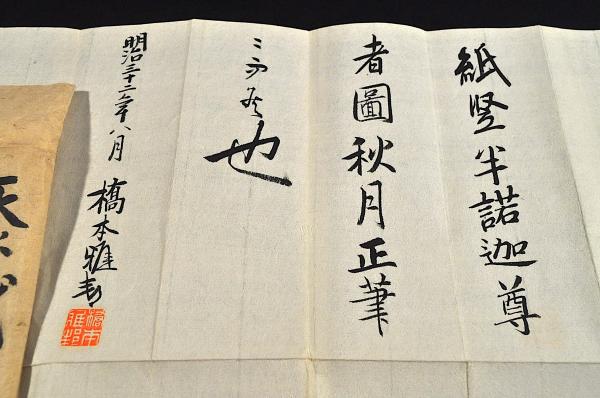 紙竪半諾迦尊
者圖秋月正筆
也
明治三十二年八月
橋本雅邦
橋本
雅邦